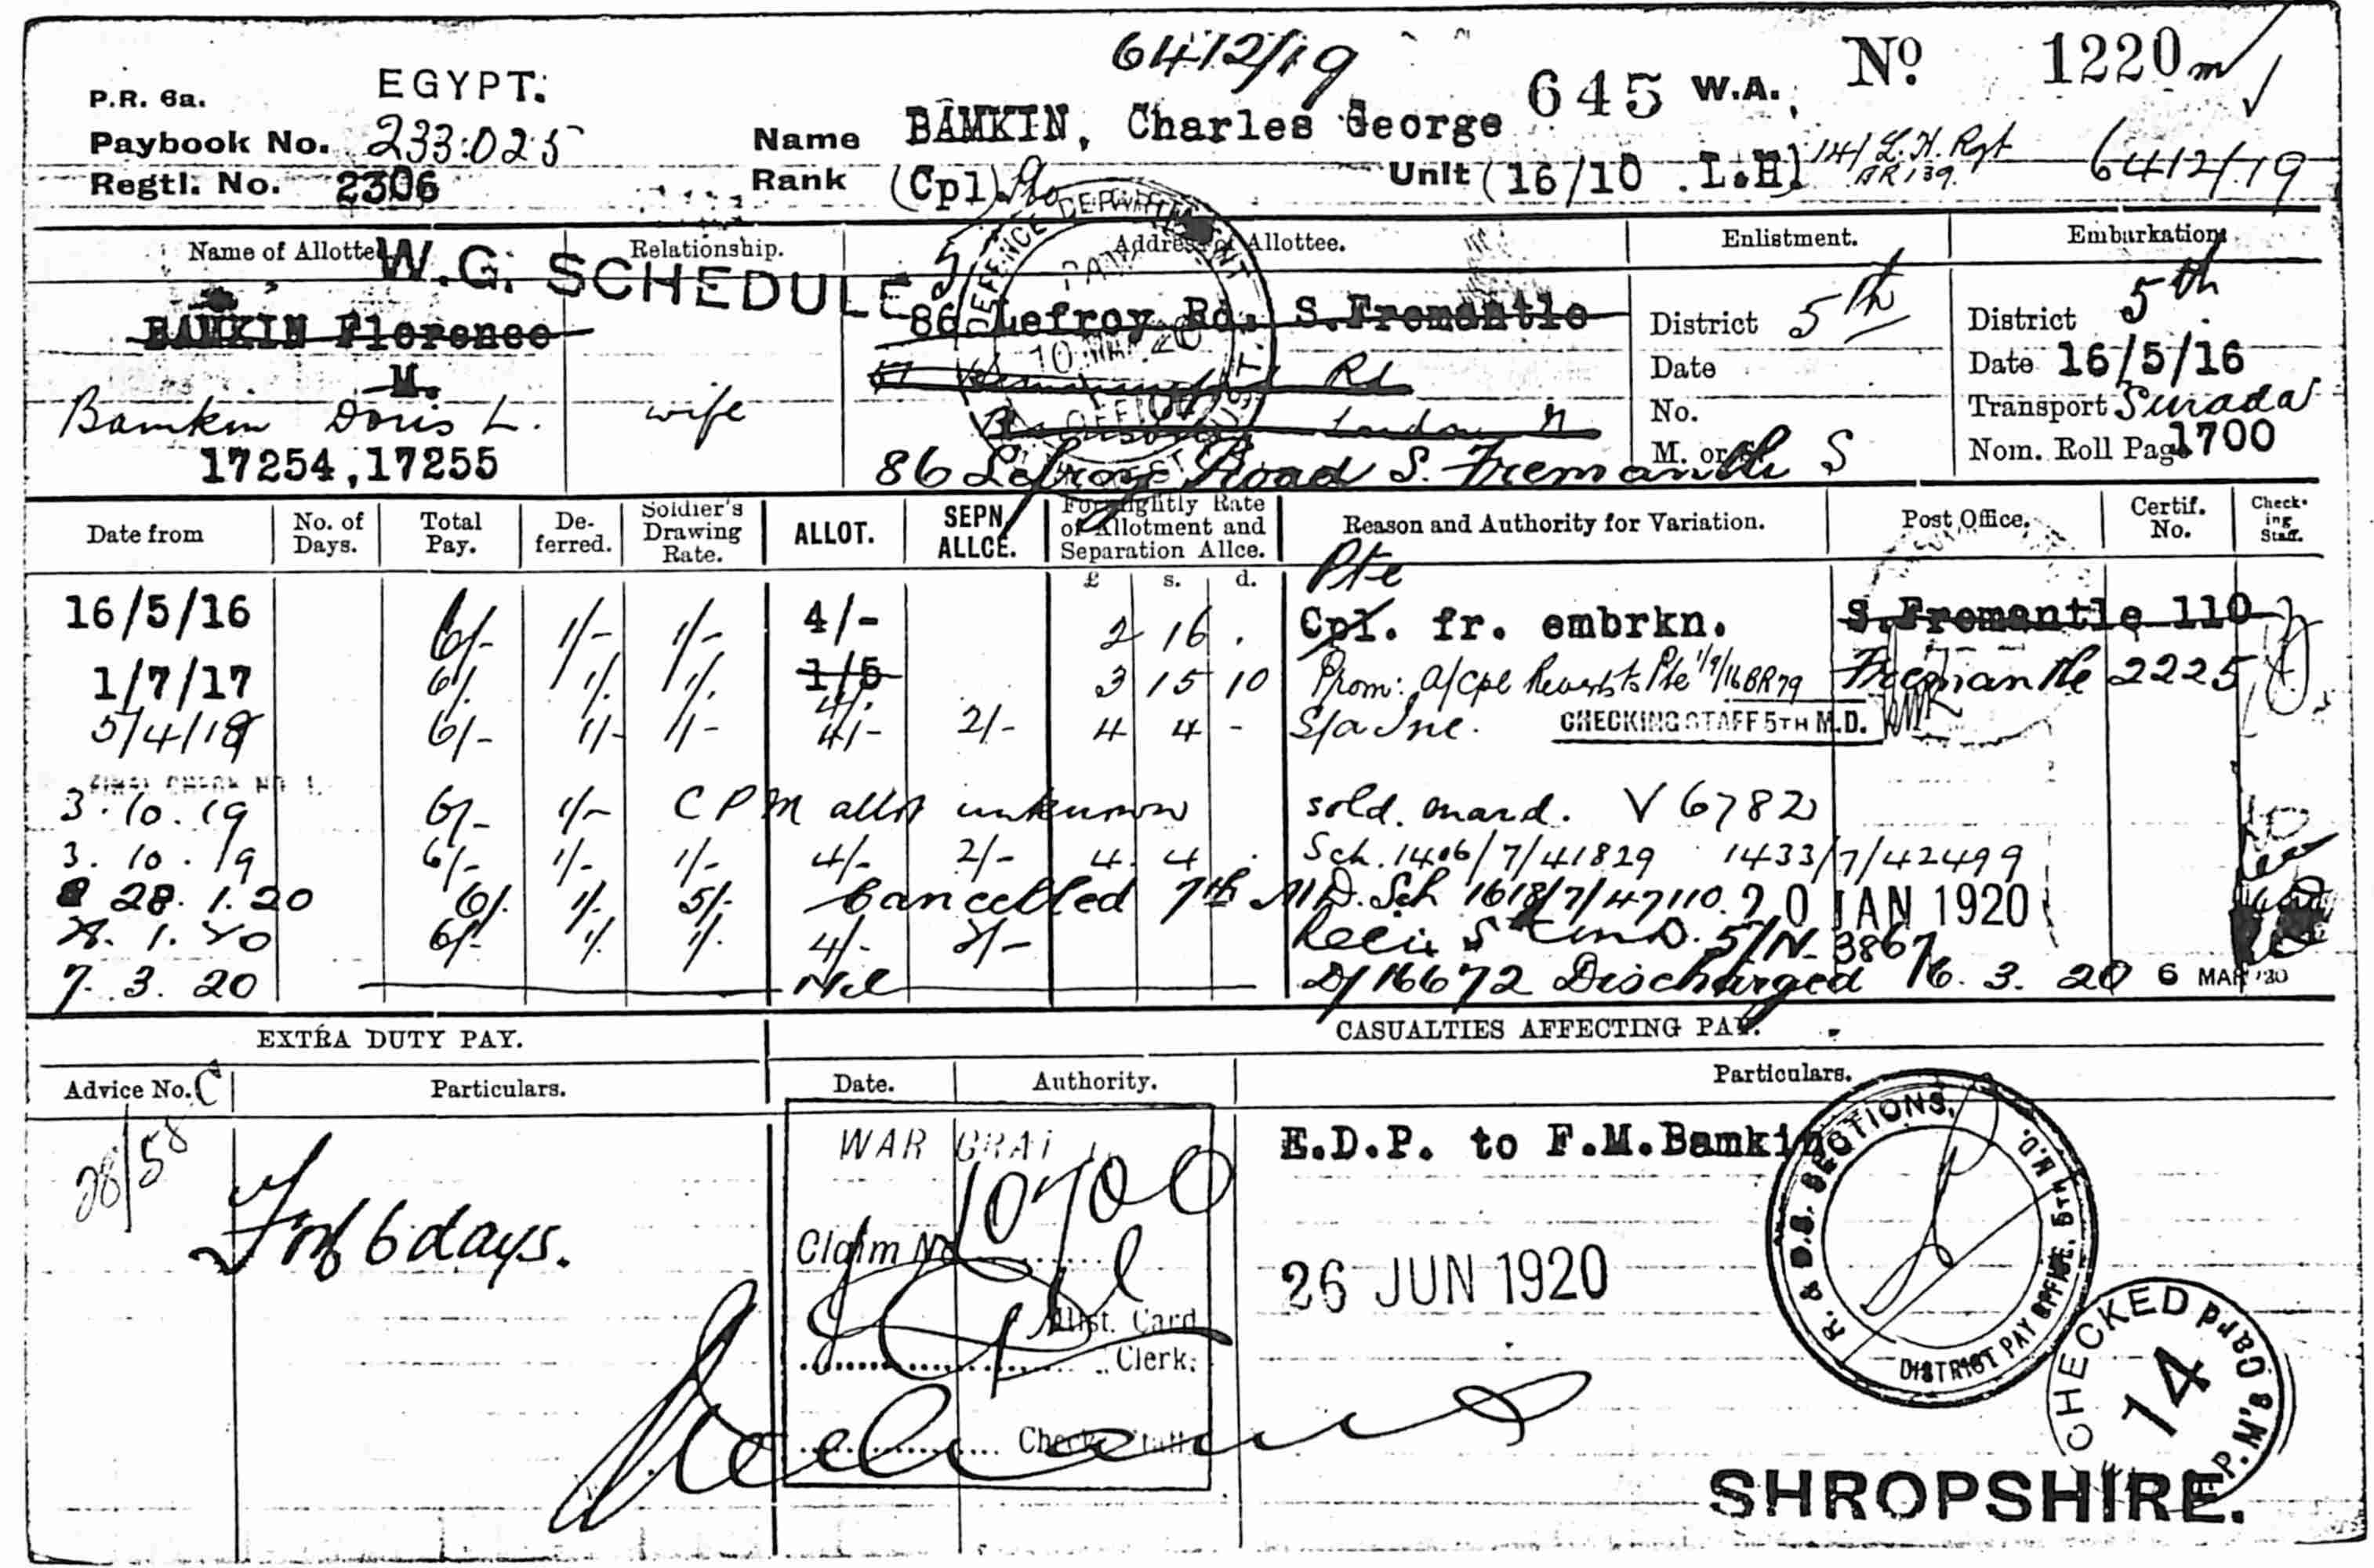 6412/19
P.R. 6a. EGYPT. 645 W.A. No. 1220
Paybook No. 233025 Name BAMKIN, Charles George
Regtl. No. 2306 Rank (Cpl) Pte Unit (16/10 .L.H) 14/ L.H. Rgt BR139. 6412/19
Name of Allottee Relationship. Address of Allottee. Enlistment. Embarkation
W.G. SCHEDULE 5
BAMKIN Florence M. 86 Lefroy Rd. S.Fremantle District 5th District 5th
Rd Date Date 16/5/16
Bamkin Doris L. wife London N No. Transport Surada
17254,17255 86 Lefroy Road S. Fremantle M. or S S Nom. Roll Page 1700
DEFENCE DEPARTMENT
Date from No. of Days. Total Pay. Deferred. Soldier's Drawing Rate. ALLOT. SEPN. ALLCE. Fortnightly Rate of Allotment and Separation Allce. Reason and Authority for Variation. Post Office. Certif. No. Checking Staff.
£ s. d. Pte
16/5/16 6/- 1/- 1/- 4/- 2 16 . Cpl. fr. embrkn. S.Fremantle 110
1/7/17 6/. 1/. 1/. 1/5 4/. 3 15 10 Prom: a/Cpl Reverts to Pte 1/9/16 BR79 Fremantle 2225
5/4/18 6/- 1/- 1/- 4/- 2/- 4 4 - S/a Inc. CHECKING STAFF 5TH M.D.
FINAL CHECK NO 1.
3.10.19 6/- 1/- C P M allot unknown sold. mard. V 6782
3.10.19 6/- 1/- 1/- 4/- 2/- 4. 4. Sch.1406/7/41829 1433/7/42499
28.1.20 6/. 1/. 5/- Cancelled 7th M.D. Sch 1618/7/47110. 20 JAN 1920
28.1.20 6/- 1/. 1/. 4/- 2/- 5/N 3867
7.3.20 Nil D/16672 Discharged 16.3.20 6 MAR '20
EXTRA DUTY PAY. CASUALTIES AFFECTING PAY.
Advice No. C Particulars. Date. Authority. Particulars.
28/58 WAR GRAT E.D.P. to F.M.Bamkin
10700
For 6 days. Claim No
26 JUN 1920
Allot. Card
Clerk.
Check. Staff.
R. & D.S. SECTIONS,
DISTRICT PAY OFFICE, 5TH M.D.
CHECKED 14 P.M's Card
SHROPSHIRE.